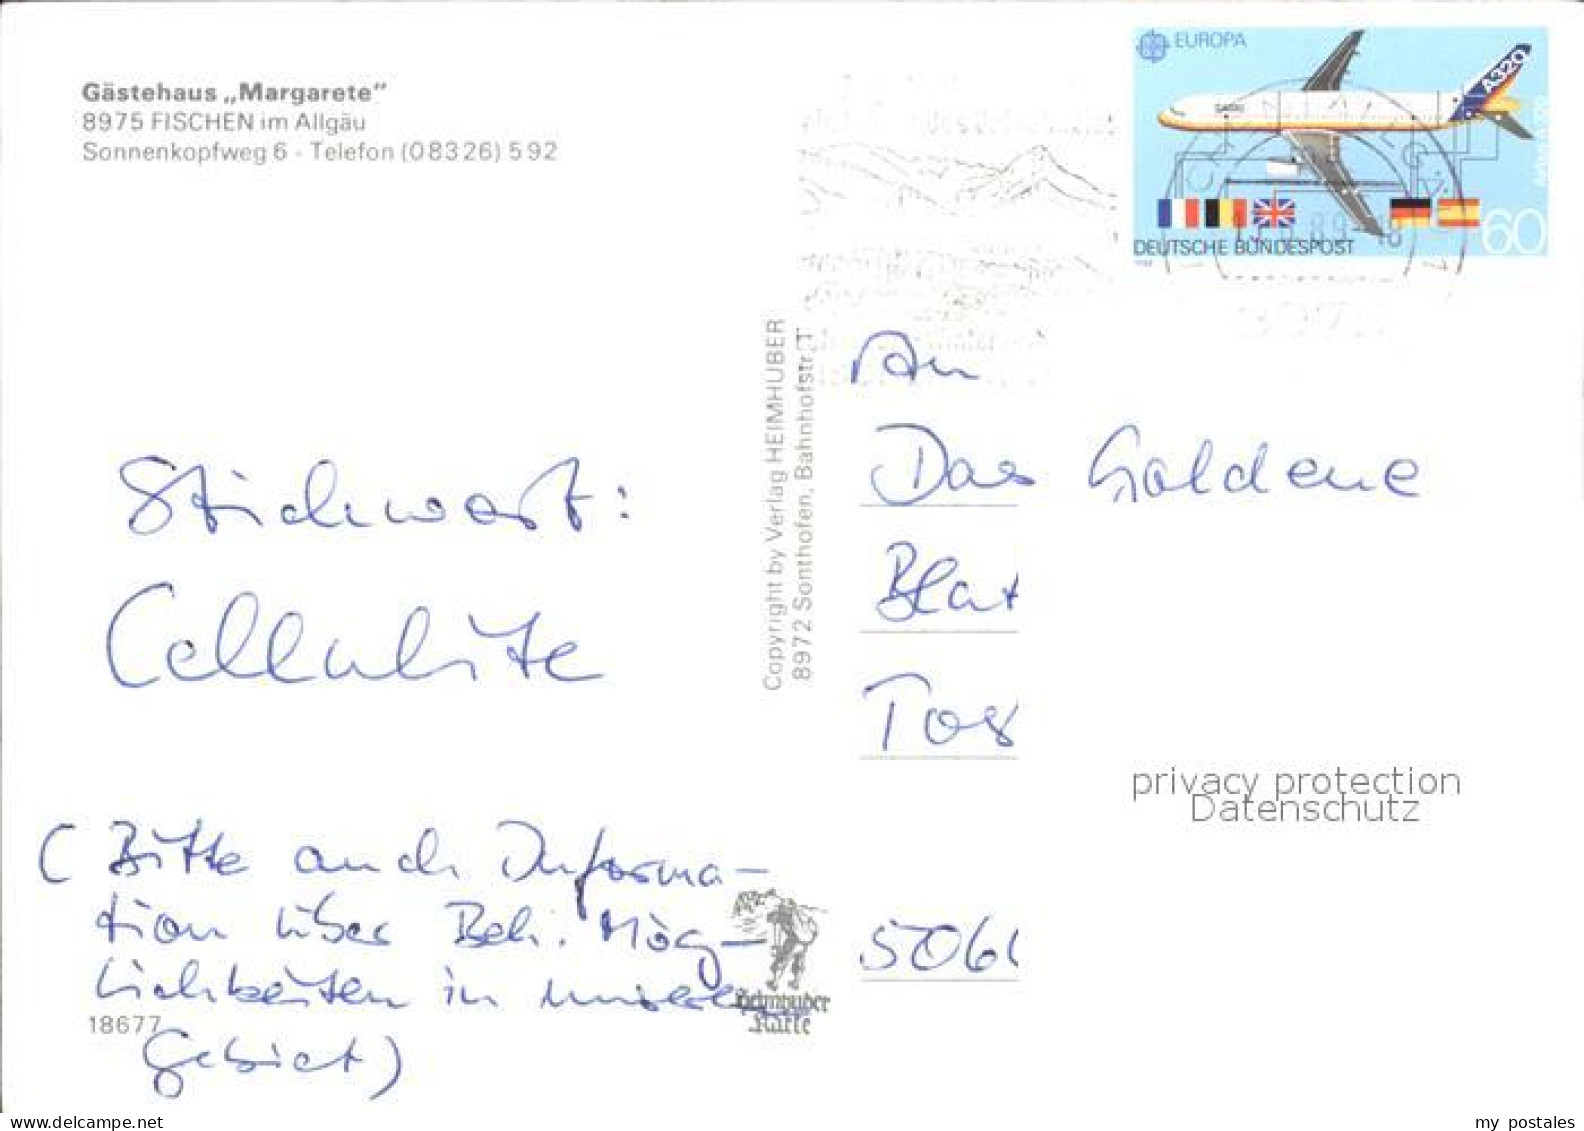 Gästehaus „Margarete"
8975 FISCHEN im Allgäu
Sonnenkopfweg 6 - Telefon (08326) 592
EUROPA
A320
DEUTSCHE BUNDESPOST
60
Copyright by Verlag HEIMHUBER
8972 Sonthofen, Bahnhofstr. 1
An
Das Goldene
Blat
Tos
506
Stichwort:
Cellulite
(Bitte auch Informa-
tion über Beh. Mög-
lichkeiten in unserem
Gebiet)
18677
Heimhuber
Karte
privacy protection
Datenschutz
my postales